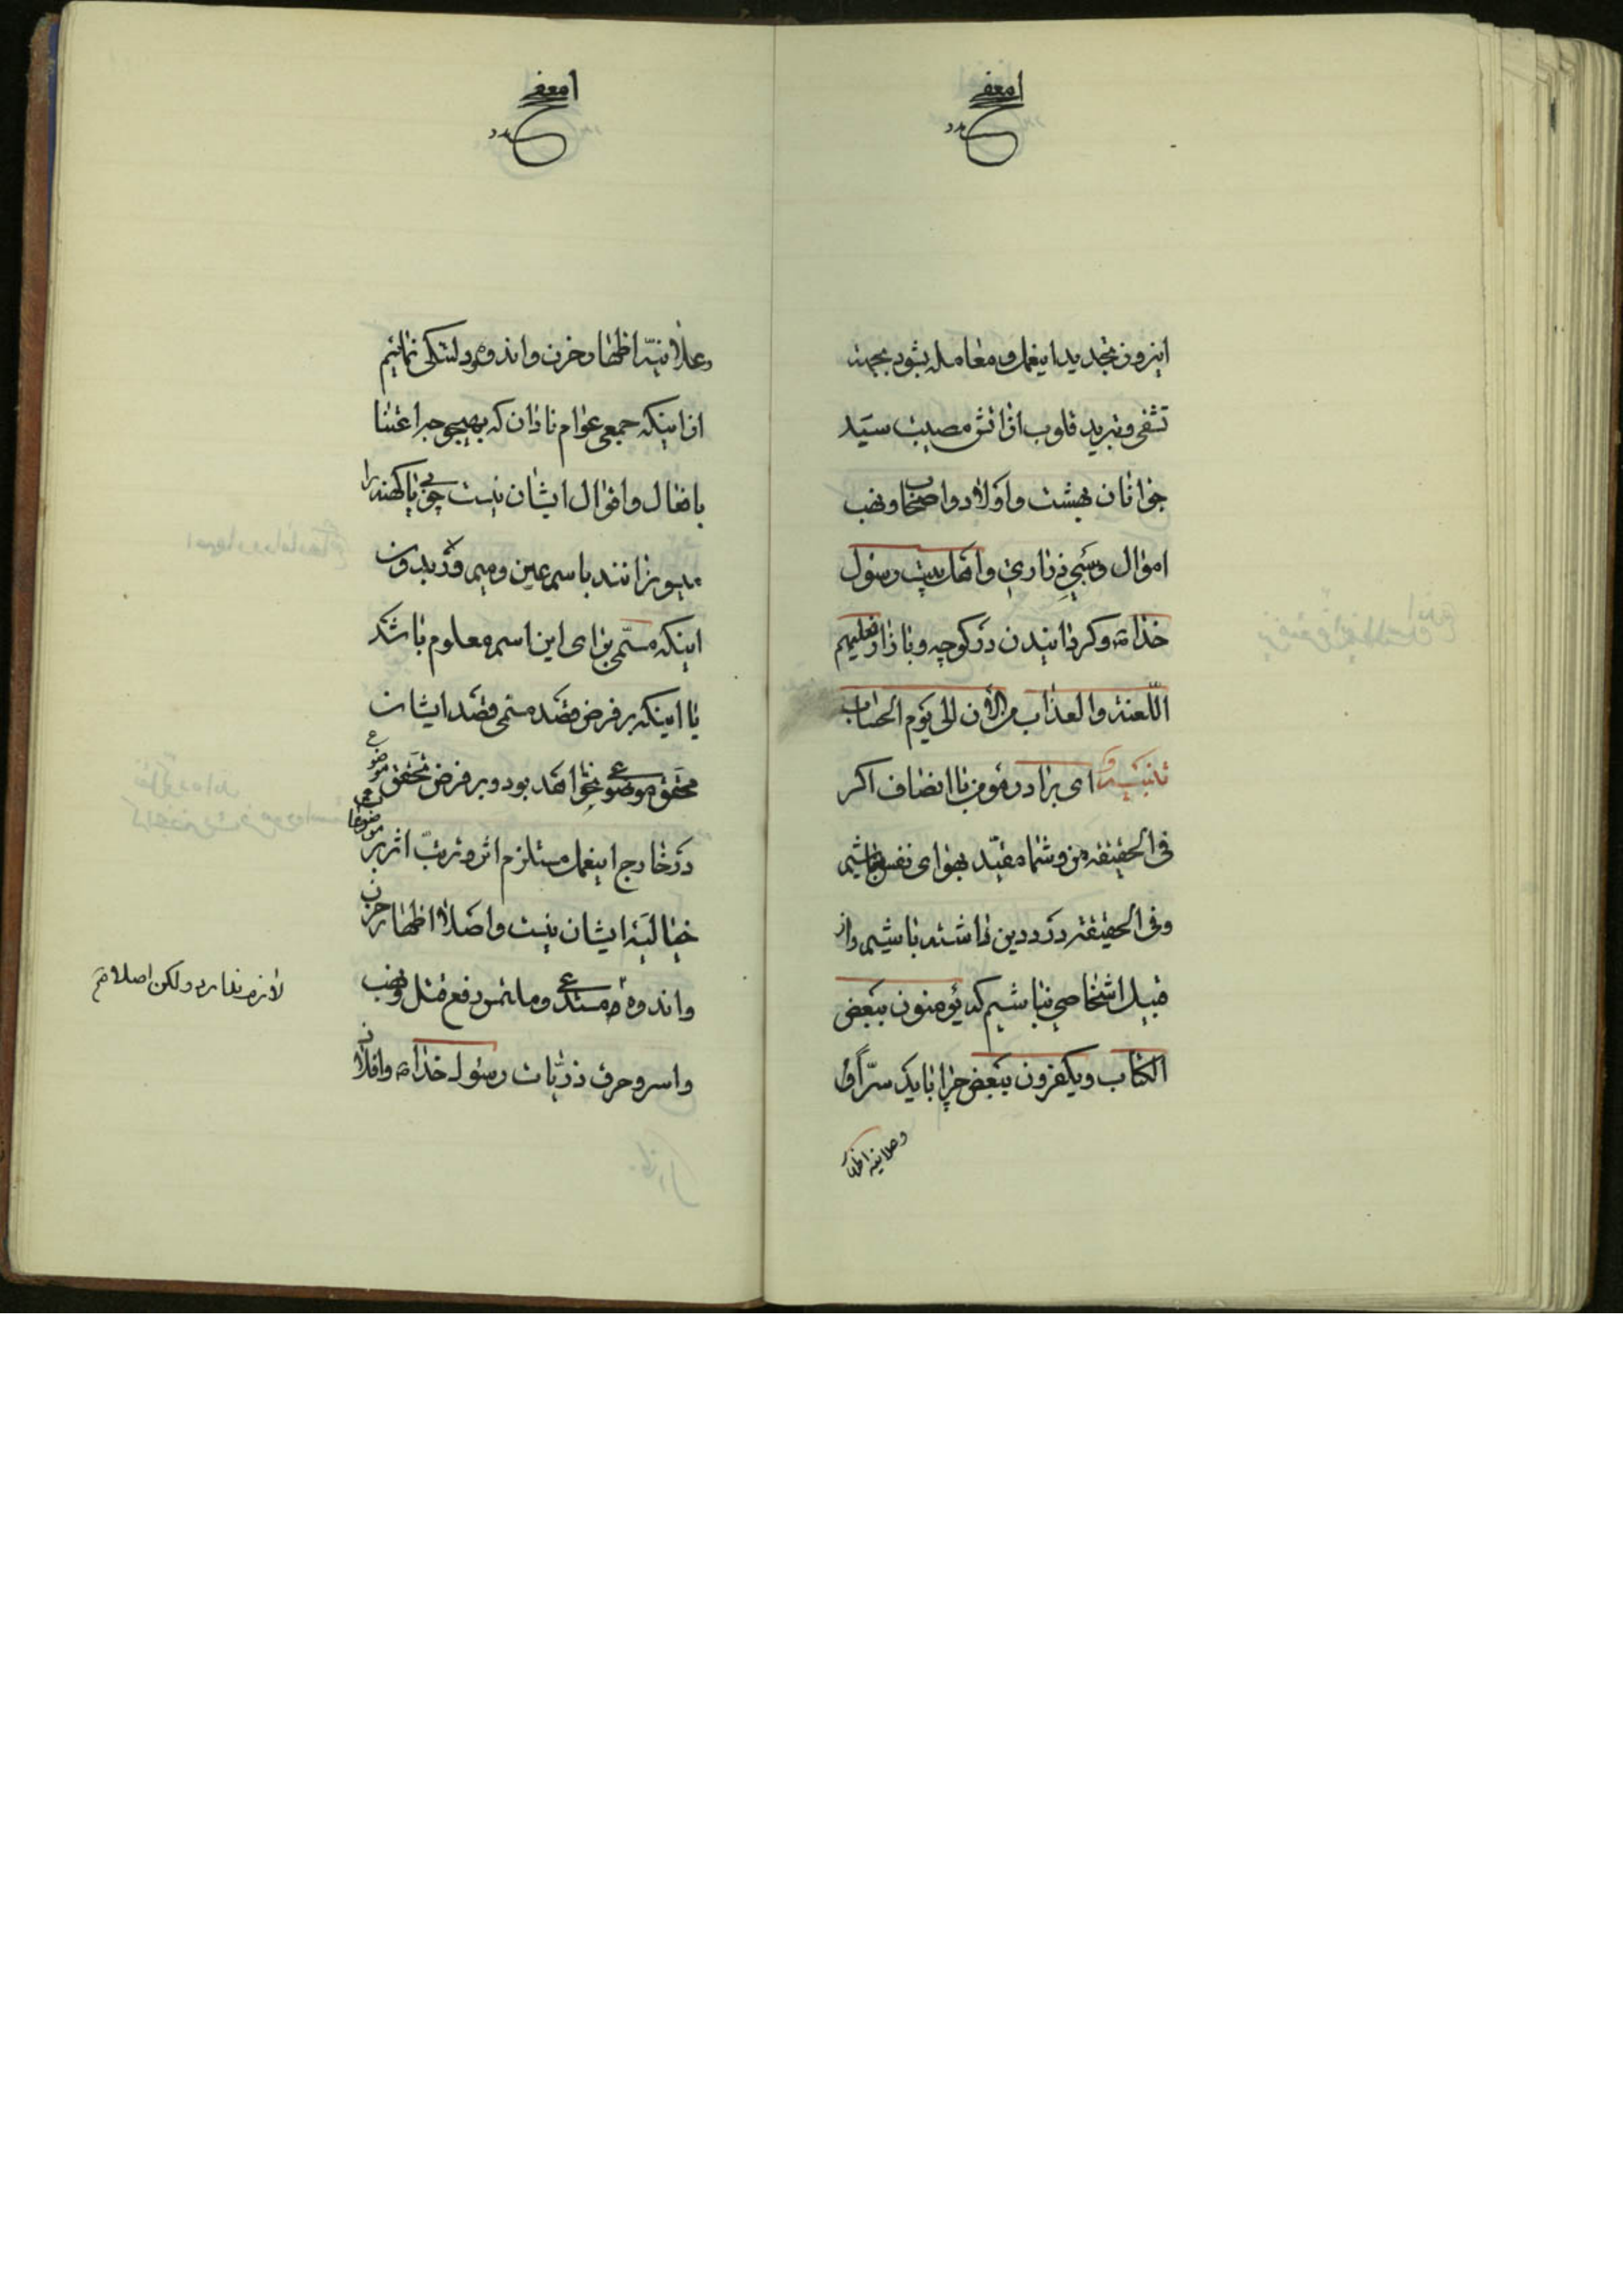 امعفے
اینروز تجدید اینعمل و معامله بشود بجهت
تشفی و تبرید قلوب از اتش مصیبت سید
جوانان بهشت و اولاد و اصحاب و نهب
اموال و سبی ذراری و اهل بیت رسول
خدا ص و گردانیدن در کوچه و بازار علیهم
اللعنة والعذاب من الآن الی یوم الحساب
تانیته و ای برادر مؤمن با انصاف اگر
فی الحقیقه من و شما مقید بهوای نفس نباشیم
و فی الحقیقه درد دین داشته باشیم و از
قبیل اشخاصی نباشیم که یؤمنون ببعض
الکتاب و یکفرون ببعض چرا باید سرّاً و
و علانیة اظهار
امعفے
وعلانیة اظهار حزن و اندوه و دلتنگی نمائیم
از اینکه جمعی عوام نادان که بهیچوجه اعتنا
بافعال و اقوال ایشان نیست چوبی یا کهنه را
بسوزانند باسم عین و میم و ر بدون
اینکه مسمّی برای این اسم معلوم باشد
یا اینکه بر فرض قصد مسمی قصد ایشان
محقق موضوع نخواهد بود و بر فرض تحقق موضوع
در خارج اینعمل مستلزم اثر و ترتب اثر بر موضوعات
خیالیه ایشان نیست و اصلا اظهار حزن
و اندوه مستدعی و ملتمس رفع قتل و نهب
لازم ندارد ولکن اصلا م
و اسر و حرق ذریات رسول خدا ص و اولاد